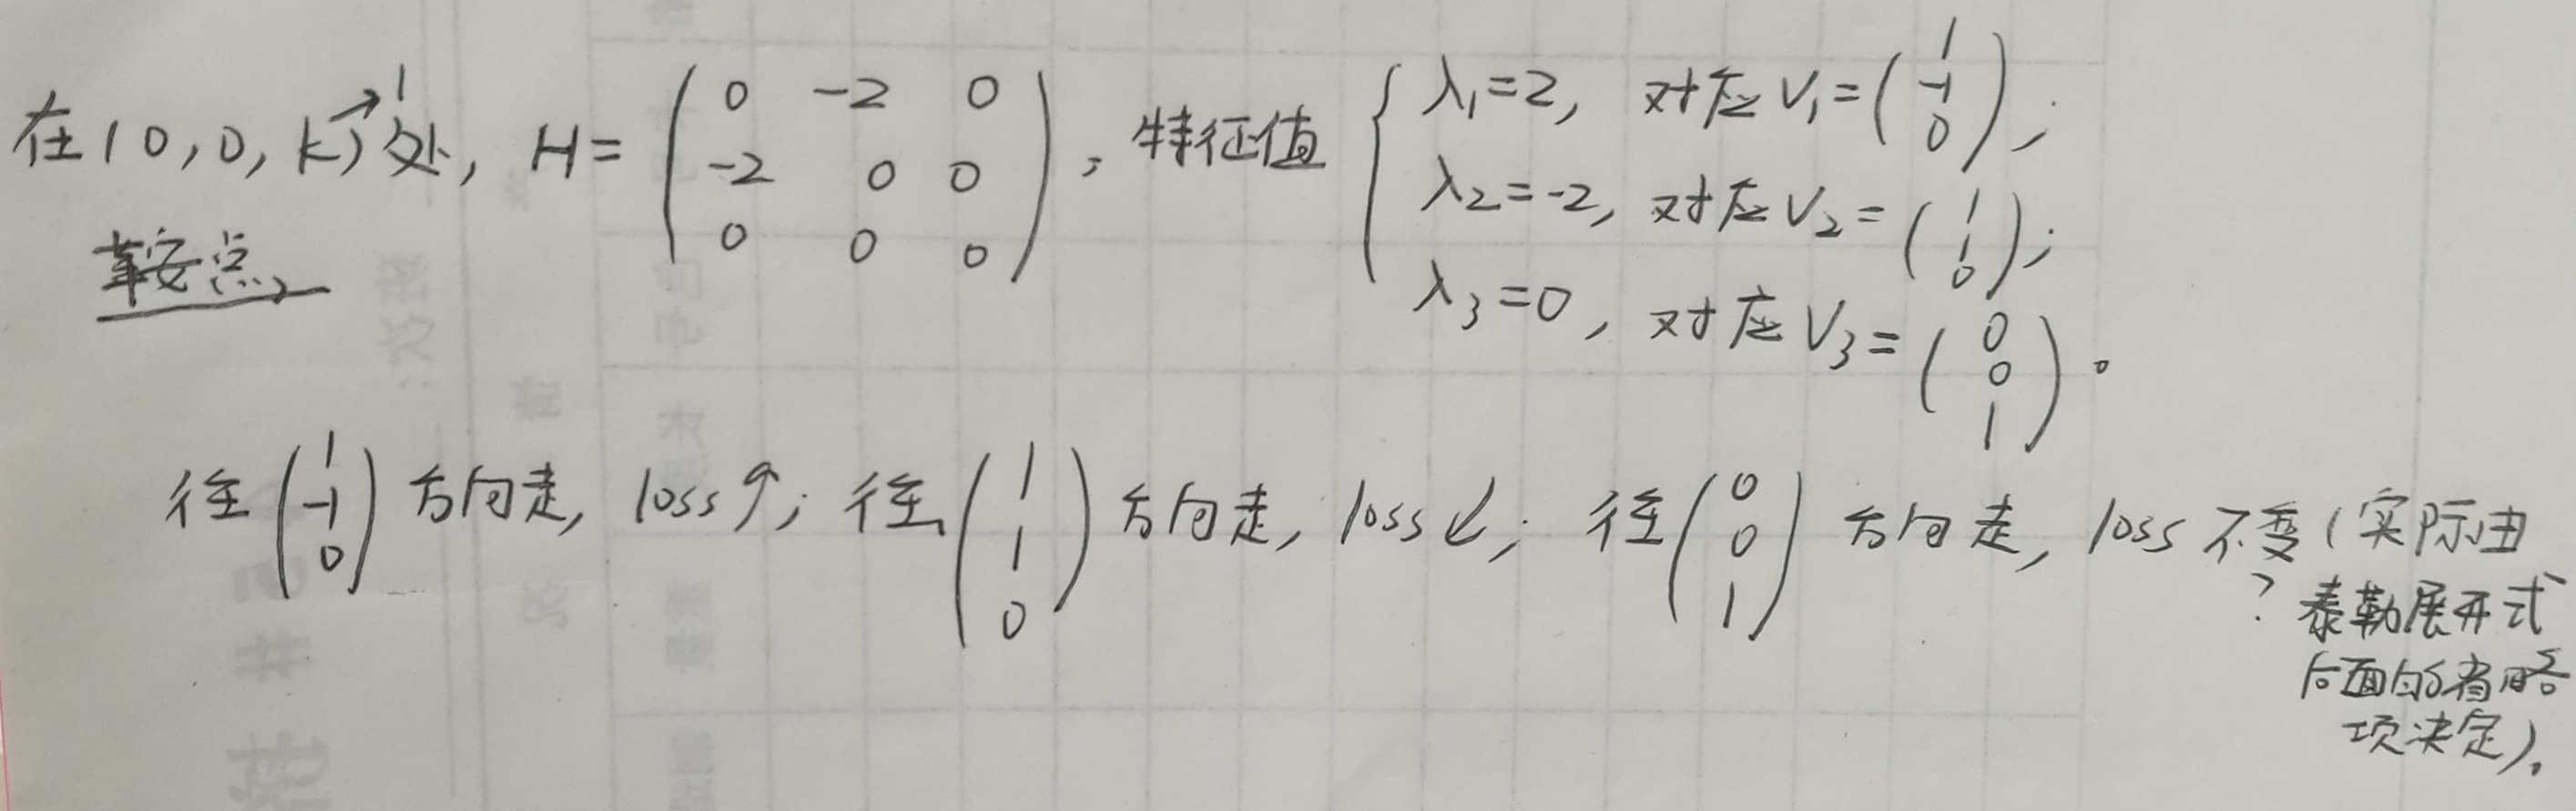 在(0,0,k)处, H=(0 -2 0
-2 0 0
0 0 0), 特征值 { λ₁=2, 对应V₁=(1 -1 0);
λ₂=-2, 对应V₂=(1 1 0);
λ₃=0, 对应V₃=(0 0 1)。
鞍点
往(1 -1 0)方向走, loss↗; 往(1 1 0)方向走, loss↙; 往(0 0 1)方向走, loss不变(实际由
? 泰勒展开式
后面的省略
项决定)。